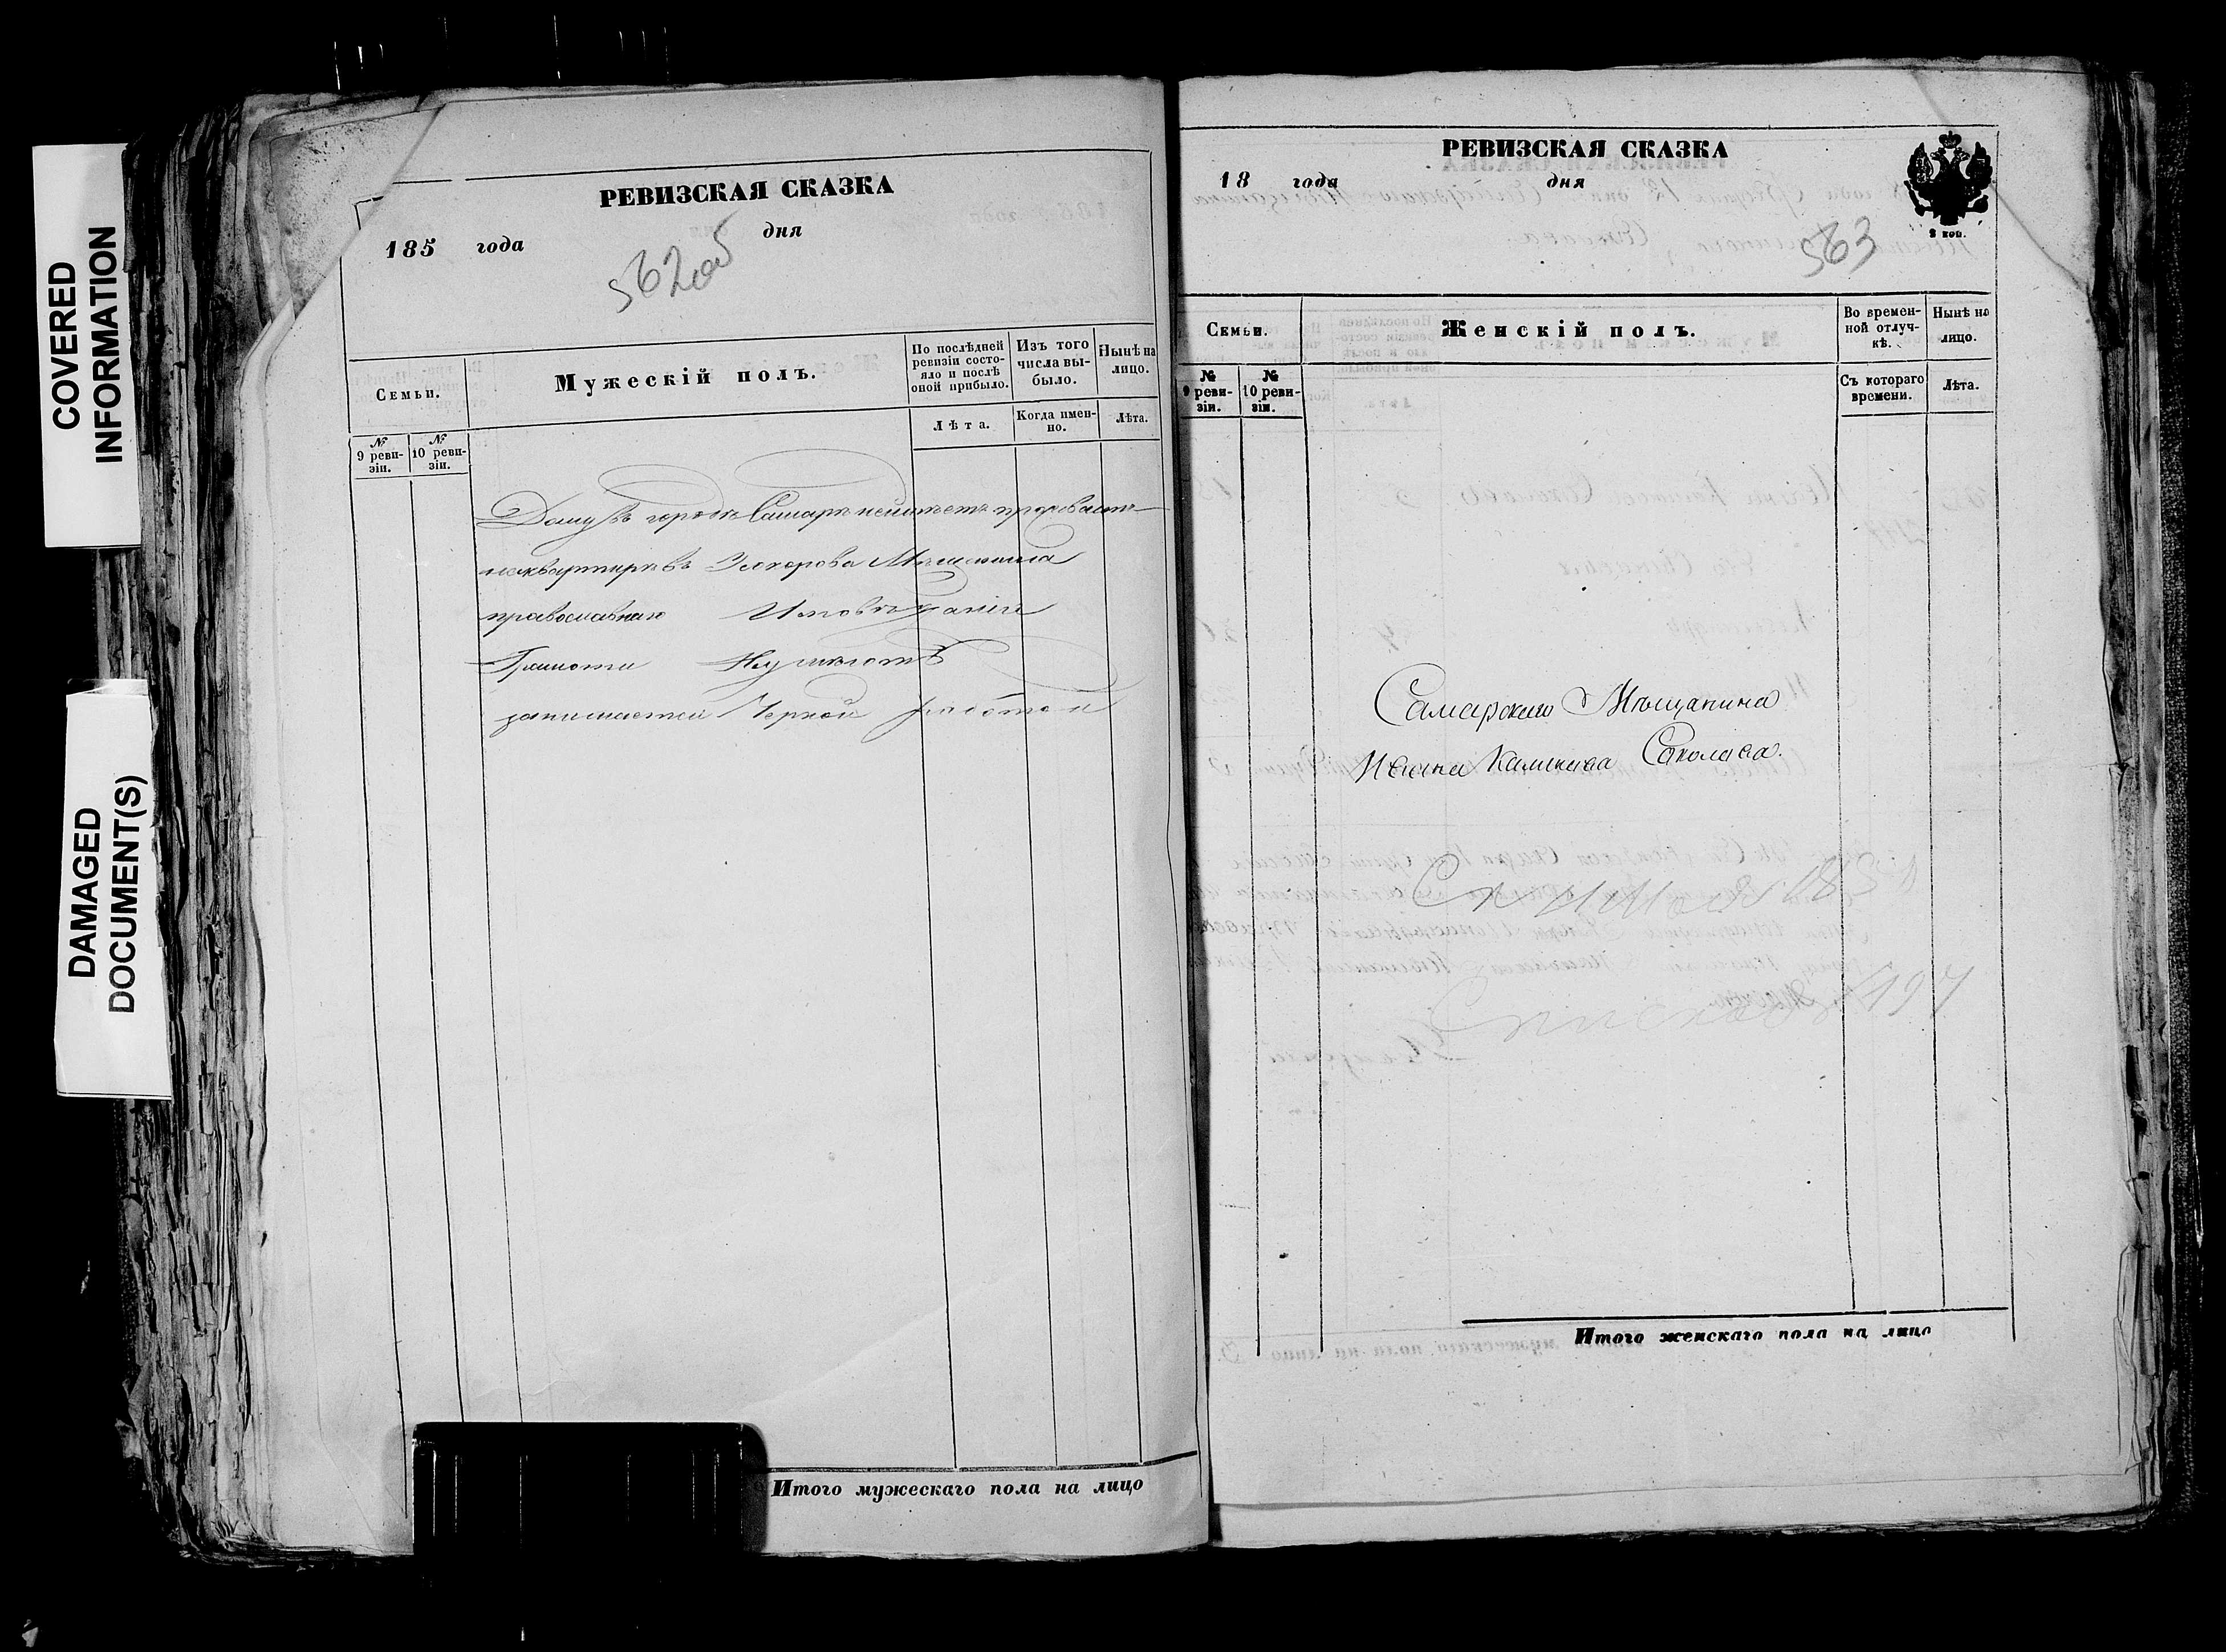 COVERED
INFORMATION
DAMAGED
DOCUMENT(S)
РЕВИЗСКАЯ СКАЗКА
185 года дня
562об
Семьи.
Мужескій полъ.
По послѣдней ревизіи состояло и послѣ оной прибыло.
Изъ того числа выбыло.
Нынѣ на лицо.
№ 9 ревизіи.
№ 10 ревизіи.
Лѣта.
Когда именно.
Лѣта.
Дому въ городѣ Самарѣ неимѣетъ проживаетъ
наквартирѣ въ Мѣщанина
православнаго Исповѣданія
Грамоти Неумѣютъ
занимается Черной работой
Итого мужескаго пола на лицо
РЕВИЗСКАЯ СКАЗКА
18 года дня
2 коп.
563
Семьи.
Женскій полъ.
Во временной отлучкѣ.
Нынѣ на лицо.
№ 9 ревизіи.
№ 10 ревизіи.
Съ котораго времени.
Лѣта.
Самарскаго Мѣщанина
Ивана Калинина Соколова.
Итого женскаго пола на лицо